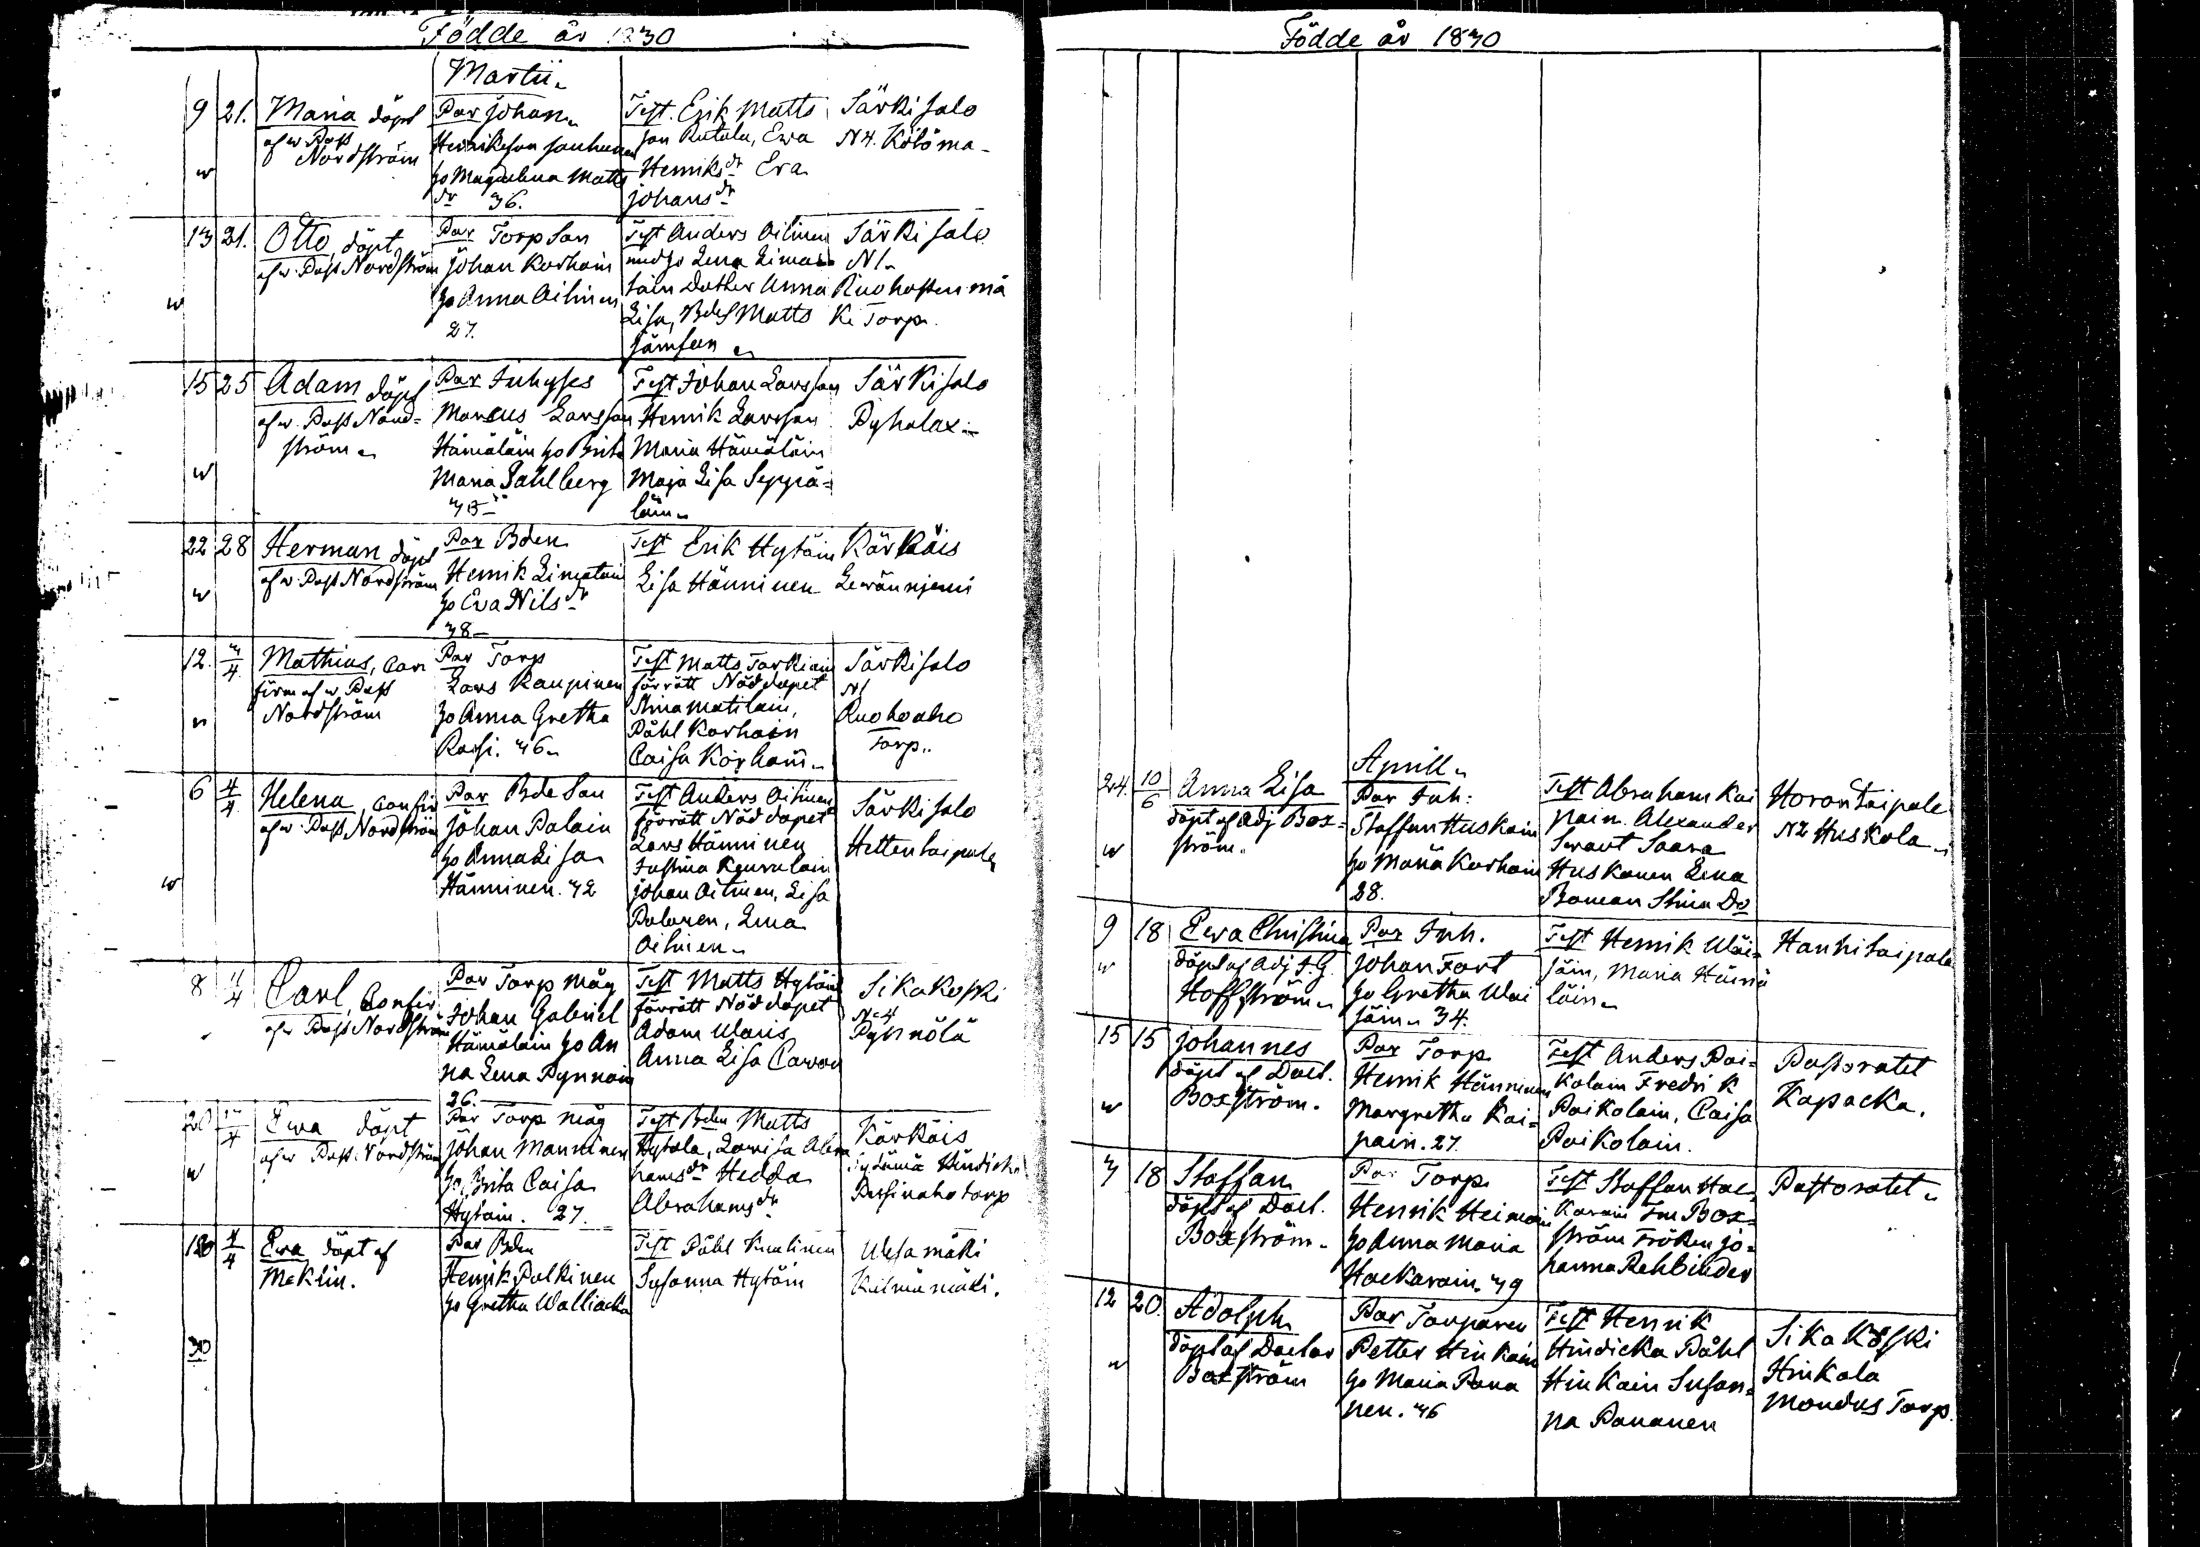 Födde år 1830
Martii
9 21. Maria döpt af w. Past Nordström
Par Johan
Henriksson
ho Magdalena Matts
dr 36.
Test. Erik Matts
son Rutala, Ewa
Henriksdr Eva
Johansdr
Särkisalo
N4. Kölöma
w
13 21. Otto, döpt
af w. Past Nordström
Par Torp Son
Johan Korhoin
ho Anna Oitinen
27.
Test Anders Oitinen
med ho Lena Lima
tain dotter Anna
Lisa, Bdes Matts
Särkisalo
N1.
Ruohostenmä
ki Torp.
w
15 25 Adam döpt
af w. Past Nord=
ström
Par Inhyses
Marcus Larsson
Hämäläin ho Brita
Maria Sahlberg
Test Johan Larsson
Henrik Larsson
Maria Hämäläin
Maja Lisa Seppä=
läin
Särkisalo
Pyhalax
w
22 28 Herman döpt
af w. Past Nordström
Par Bden
Henrik Limatain
ho Eva Nilsdr
38
Test Erik Hytöin
Lisa Hänninen
Kärkäis
Lewänniemi
w
12. 3/4 Mathias, Con
firm af w Past
Nordström
Par Torp
Lars Kaupinen
ho Anna Gretha
Rassi. 46
Test Matts Tarkiain
förrätt Nöddopet
Stina Matilain,
Påhl Korhoin
Caisa Korhoin
Särkisalo
N1
Ruohoaho
Torp
6 4/4 Helena, Confir
af w. Past Nordström
Par Bde Son
Johan Palain
ho Anna Lisa
Hänninen. 42
Test Anders Oitinen
förrätt Nöddopet
Lars Hänninen
Justina
Johan Oitinen, Lisa
Polonen, Lena
Oitinen
Särkisalo
Hettentaipale
w
8 4/4 Carl, Confir
af w Past Nordström
Par Torp Måg
Johan Gabriel
Hämäläin ho An
na Lena Pynnöin
26.
Test Matts Hytöin
förrätt Nöddopet
Adam
Anna Lisa
Sikakoski
N 4
Pynnölä
20 Ewa döpt
af w Past. Nordström
Par Torp Måg
Johan Manninen
ho Brita Caisa
Hytöin. 27.
Test Bden Matts
Hytola, Lovisa Abra
hamsdr Hedda
Abrahamsdr
Kärkäis
Torp
w
4/4 Eva döpt af
Meklin.
Par Bden
Henrik Palkinen
ho Gretha
Test Påhl
Susanna Hytöin
Wesamäki
Kilmämäki.
30
Födde år 1830
Aprill
24. 10/6 Anna Lisa
döpt af Adj Box=
ström.
Par Inh:
Staffan Huskoin
ho Maria Korhoin
28.
Test Abraham Kai
pain. Alexander
Savant Saara
Huskonen Lena
Boman Stina Do
Horontaipale
N2 Huskola
w
9 18 Ewa Christina
döpt af Adj J. G.
Hoffström
Par Inh.
Johan Fort
ho Gretha Wäi
säin 34.
Test Henrik Wäi=
säin, Maria Hämä
läin
Hanhitaipale
w
15 15 Johannes
döpt af Doct.
Boxström.
Par Torp
Henrik Hänninen
Margretha Kai=
pain. 27.
Test Anders Poi=
kolain Fredrik
Poikolain, Caisa
Poikolain.
Pastoratet
Kapacka.
w
3 18 Staffan
döpt af Doct.
Boxström
Par Torp
Henrik Heimoin
ho Anna Maria
Hackarain. 39
Test Staffan Hac
karain Fru Box=
ström Fröken Jo=
hanna Rehbinder
Pastoratet
12 20. Adolph
döpt af Doctor
Boxström
Par Torparen
Petter Hinkain
ho Maria Pana
nen. 46
Test Henrik
Hindicka Påhl
Hinkain Susan=
na Pananen
Sikakoski
Hinkala
Mondus Torp.
w